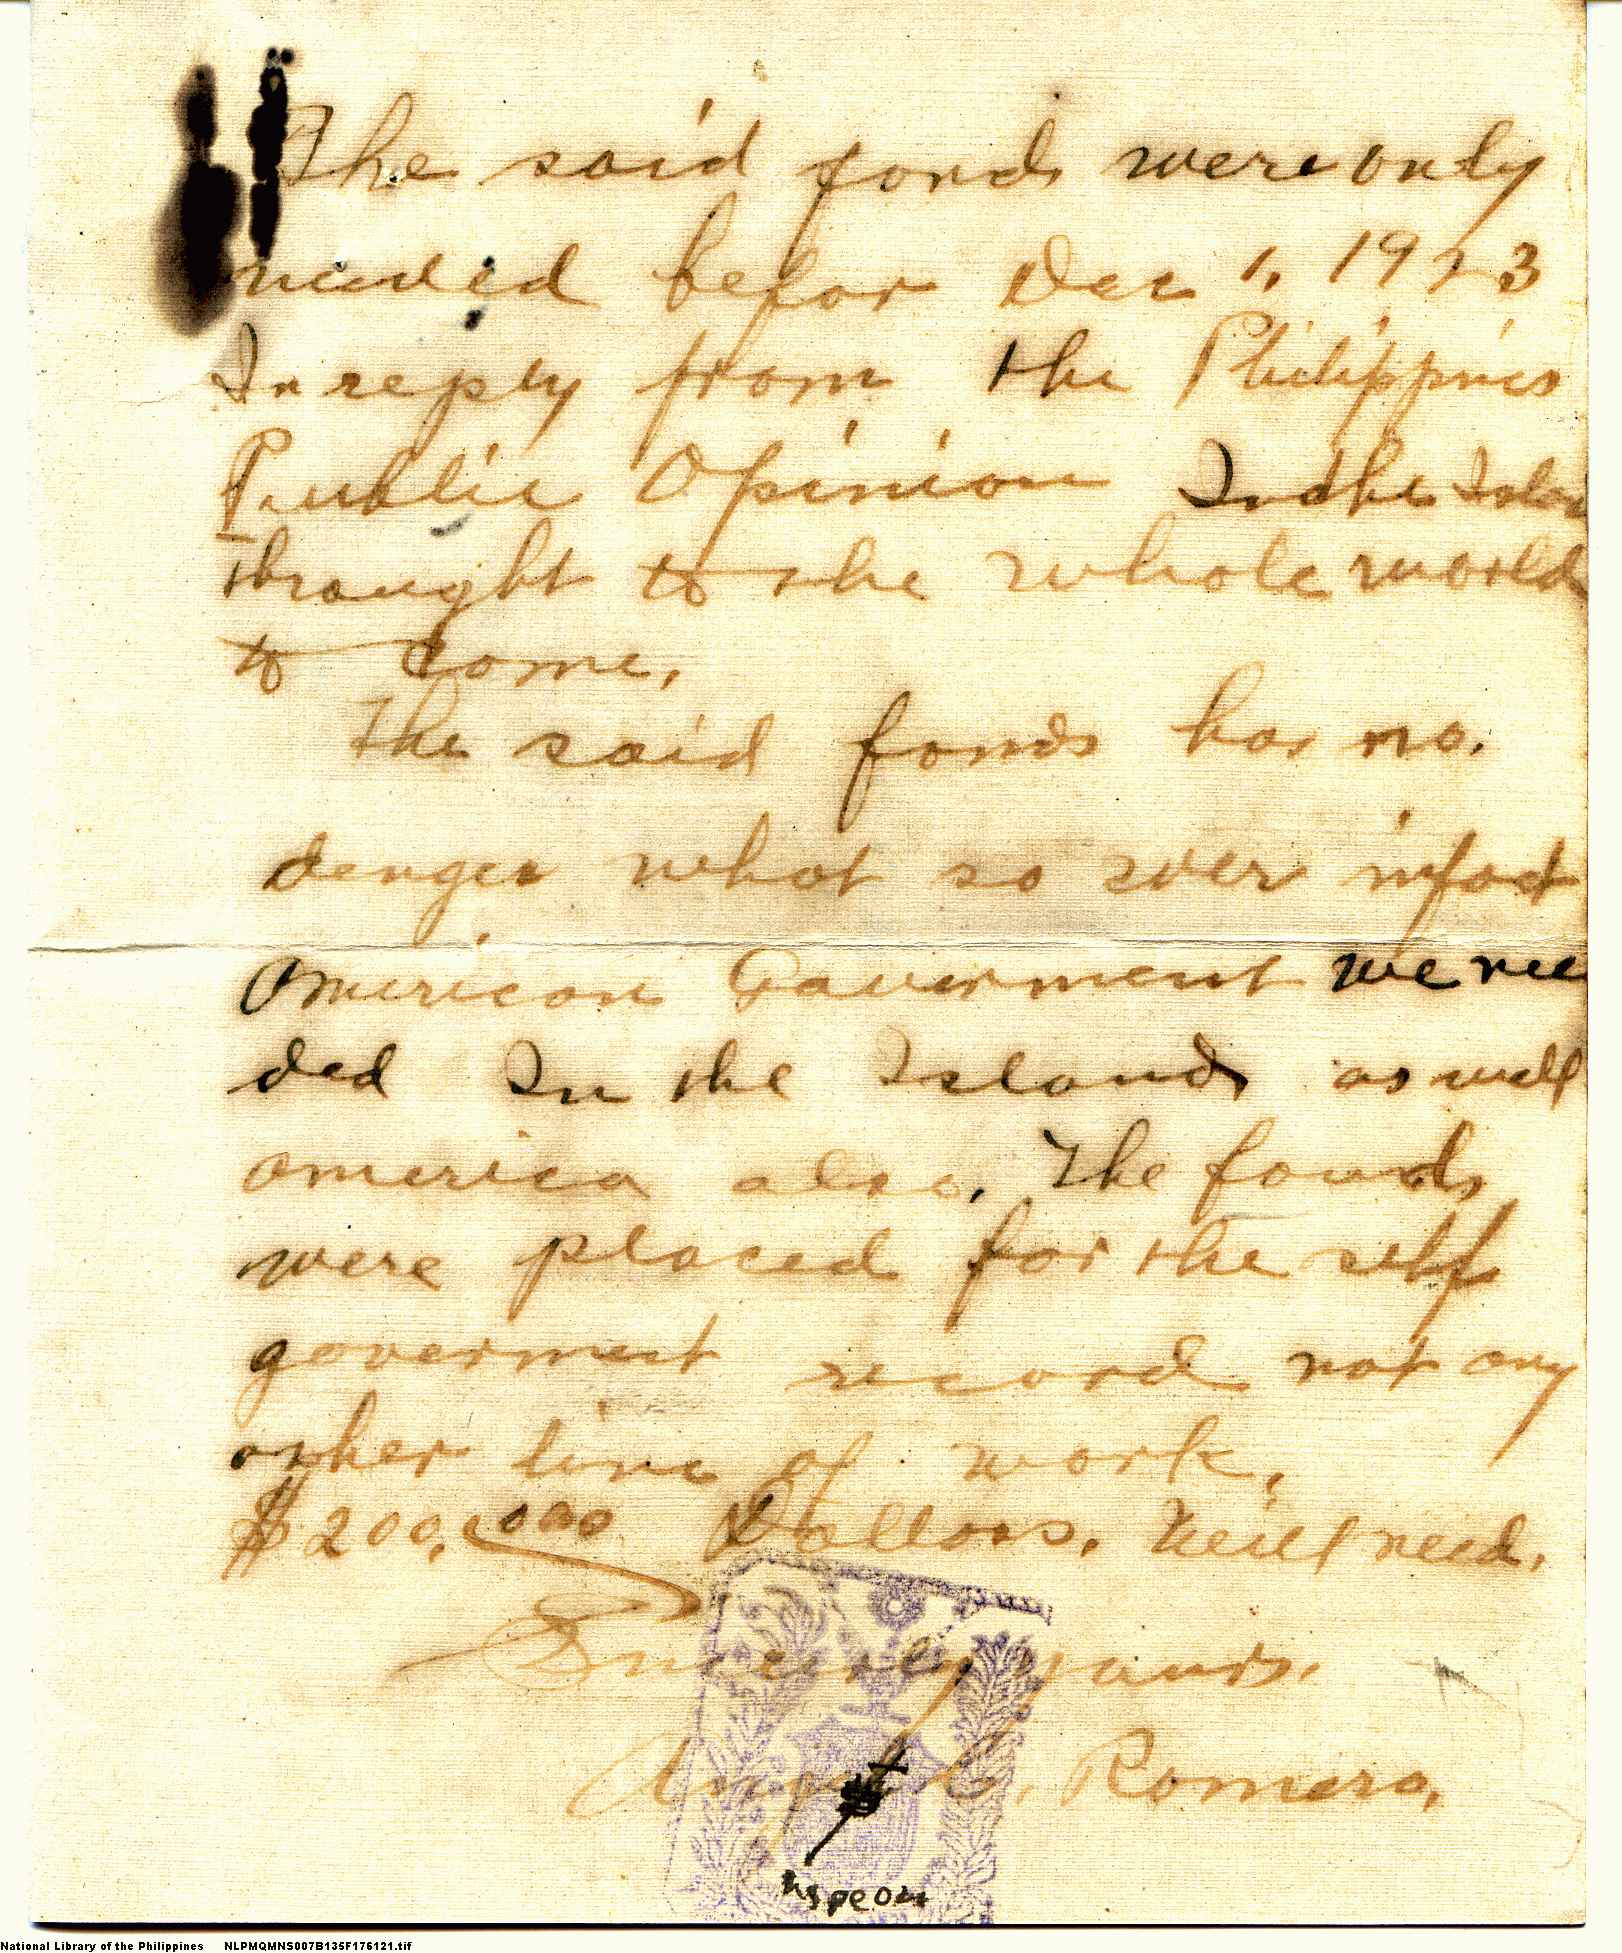 The said fonds were only
needed befor Dec 1, 1923
In reply from the Philippines
Public Opinion In the Islan
throught to the whole world
to come.
The said fonds has no.
denger what so ever infact
American Gaverment we nee
ded In the Islands as well
america also. The founds
were placed for the self
goverment record not any
other line of work.
$200,000 Dollars. Will need.
Sincerely yours.
Angel C. Romero.
National Library of the Philippines NLPMQMNS007B135F176121.tif